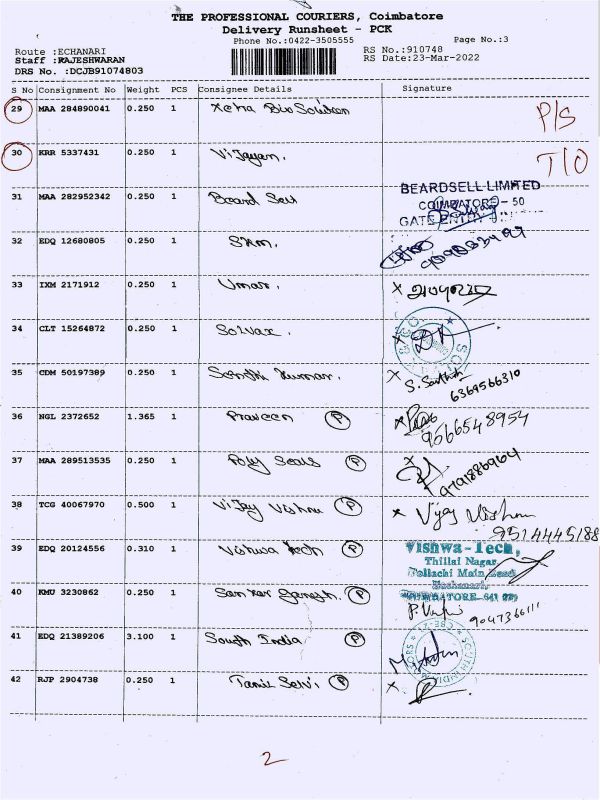 THE PROFESSIONAL COURIERS, Coimbatore
Delivery Runsheet - PCK
Phone No.:0422-3505555 Page No.:3
Route :ECHANARI RS No.:910748
Staff :RAJESHWARAN RS Date:23-Mar-2022
DRS No. :DCJB91074803
S No Consignment No Weight PCS Consignee Details Signature
29 MAA 284890041 0.250 1 P/S
30 KRR 5337431 0.250 1 Vijayan. T/O
31 MAA 282952342 0.250 1 Beard Sell BEARDSELL LIMITED
COIMBATORE - 50
GATE ENTRY
32 EDQ 12680805 0.250 1 SKM.
33 IXM 2171912 0.250 1 Umar.
34 CLT 15264872 0.250 1 Solvax.
35 CDM 50197389 0.250 1 Kumar. S. Santhi
6369566310
36 NGL 2372652 1.365 1 Praveen P
9566548954
37 MAA 289513535 0.250 1 Poly Seals P
38 TCG 40067970 0.500 1 Vijay Vishnu P Vijay Vishnu
9514445188
39 EDQ 20124556 0.310 1 Vishwa Tech P Vishwa-Tech,
Thillai Nagar
Pollachi Main Road
40 KMU 3230862 0.250 1 Sankar Ganesh. P COIMBATORE-641 021
9047366111
41 EDQ 21389206 3.100 1 South India P
42 RJP 2904738 0.250 1 Tamil Selvi P
2